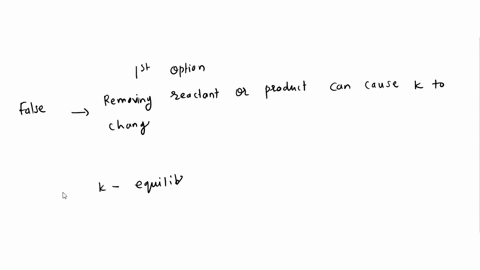 1st option
False → Removing reactant or product can cause k to
chang
k - equilib